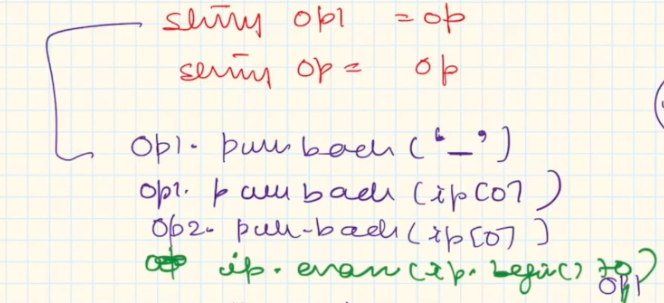 string op1 = op
string op = op
op1. push back ('_')
op1. push back (ip[0])
op2. push-back (ip[0])
ip. erase (ip. begin() + 0)
op1